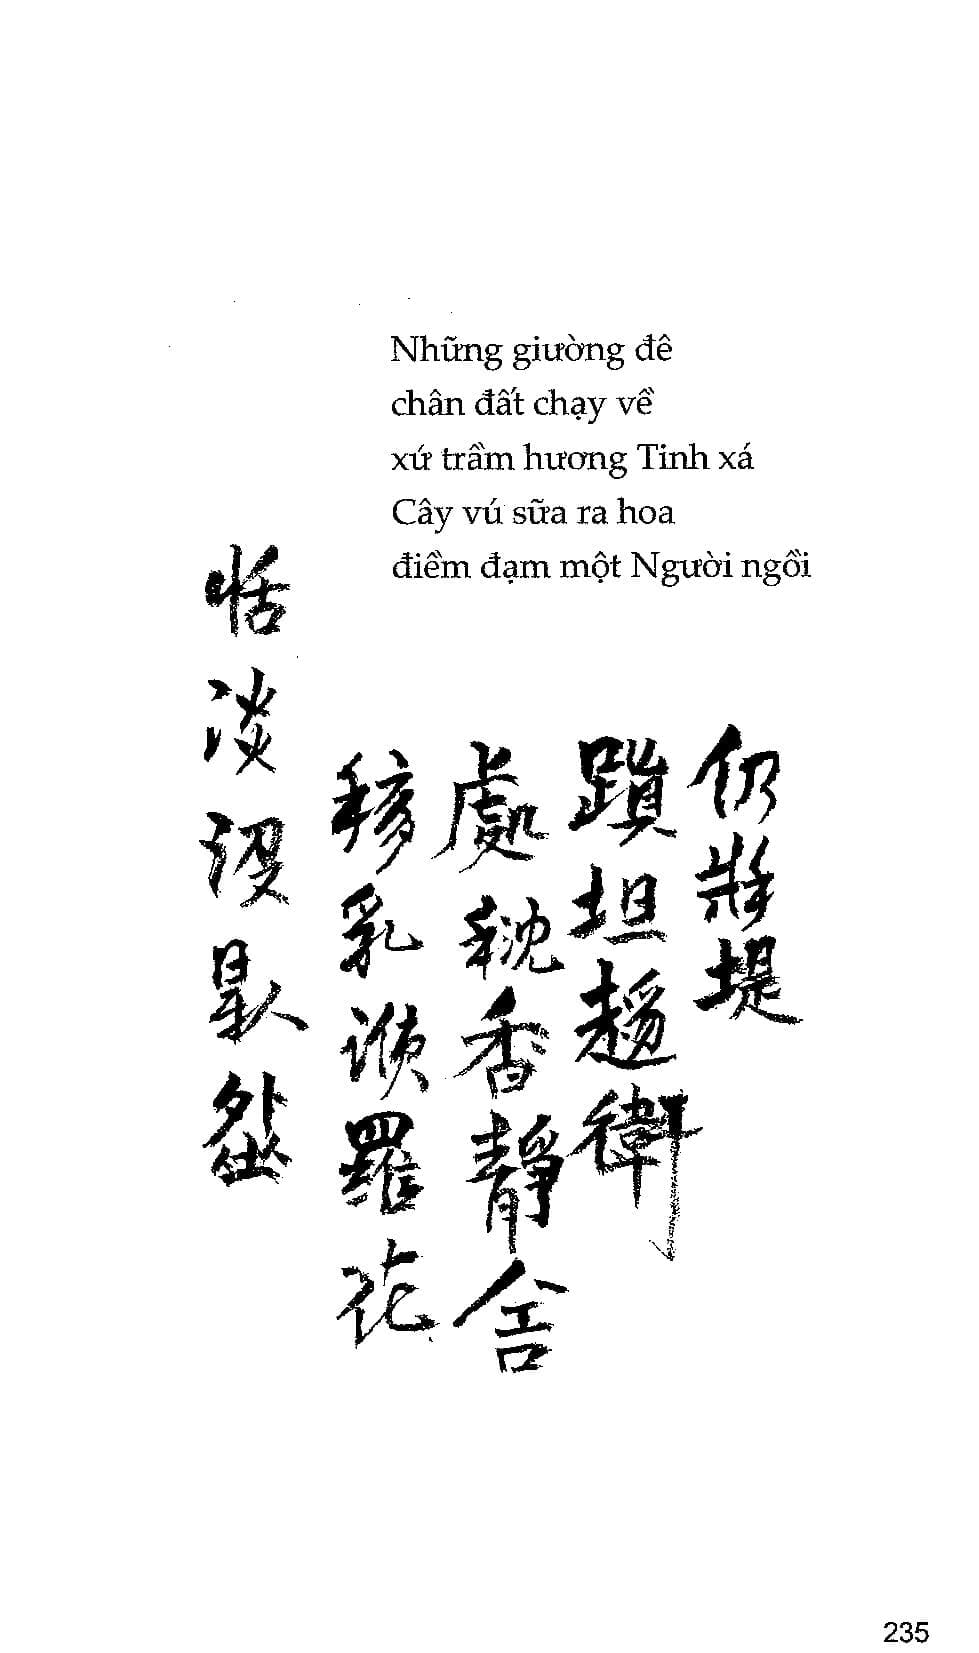 Những giường đê
chân đất chạy về
xứ trầm hương Tinh xá
Cây vú sữa ra hoa
điềm đạm một Người ngồi
仍 堤
蹎坦 衛
處 香靜舍
乳 羅花
恬淡
235